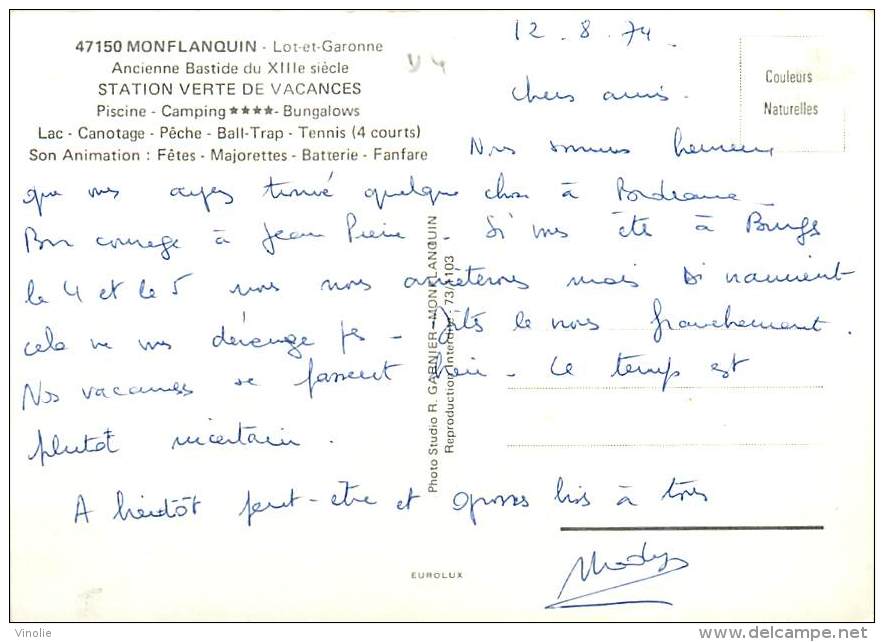 47150 MONFLANQUIN - Lot-et-Garonne
Ancienne Bastide du XIIIe siècle
STATION VERTE DE VACANCES
Piscine - Camping ★★★★- Bungalows
Lac - Canotage - Pêche - Ball-Trap - Tennis (4 courts)
Son Animation : Fêtes - Majorettes - Batterie - Fanfare
Couleurs
Naturelles
12 - 8 - 74
Chers amis.
Nous sommes heureux
que vous ayez trouvé quelque chose à Bordeaux
Bon courage à Jean Pierre - Si vous êtes à
le 4 et le 5 nous nous arrêterons mais si vraiment
cela ne vous dérange pas - Dites le nous franchement.
Nos vacances se passent bien - Le temps est
plutôt incertain.
A bientôt peut-être et grosses bises à tous
Photo Studio R. GARNIER - MONFLANQUIN
Reproduction Interdite : 73/1103
EUROLUX
Vinolie
delcampe.net